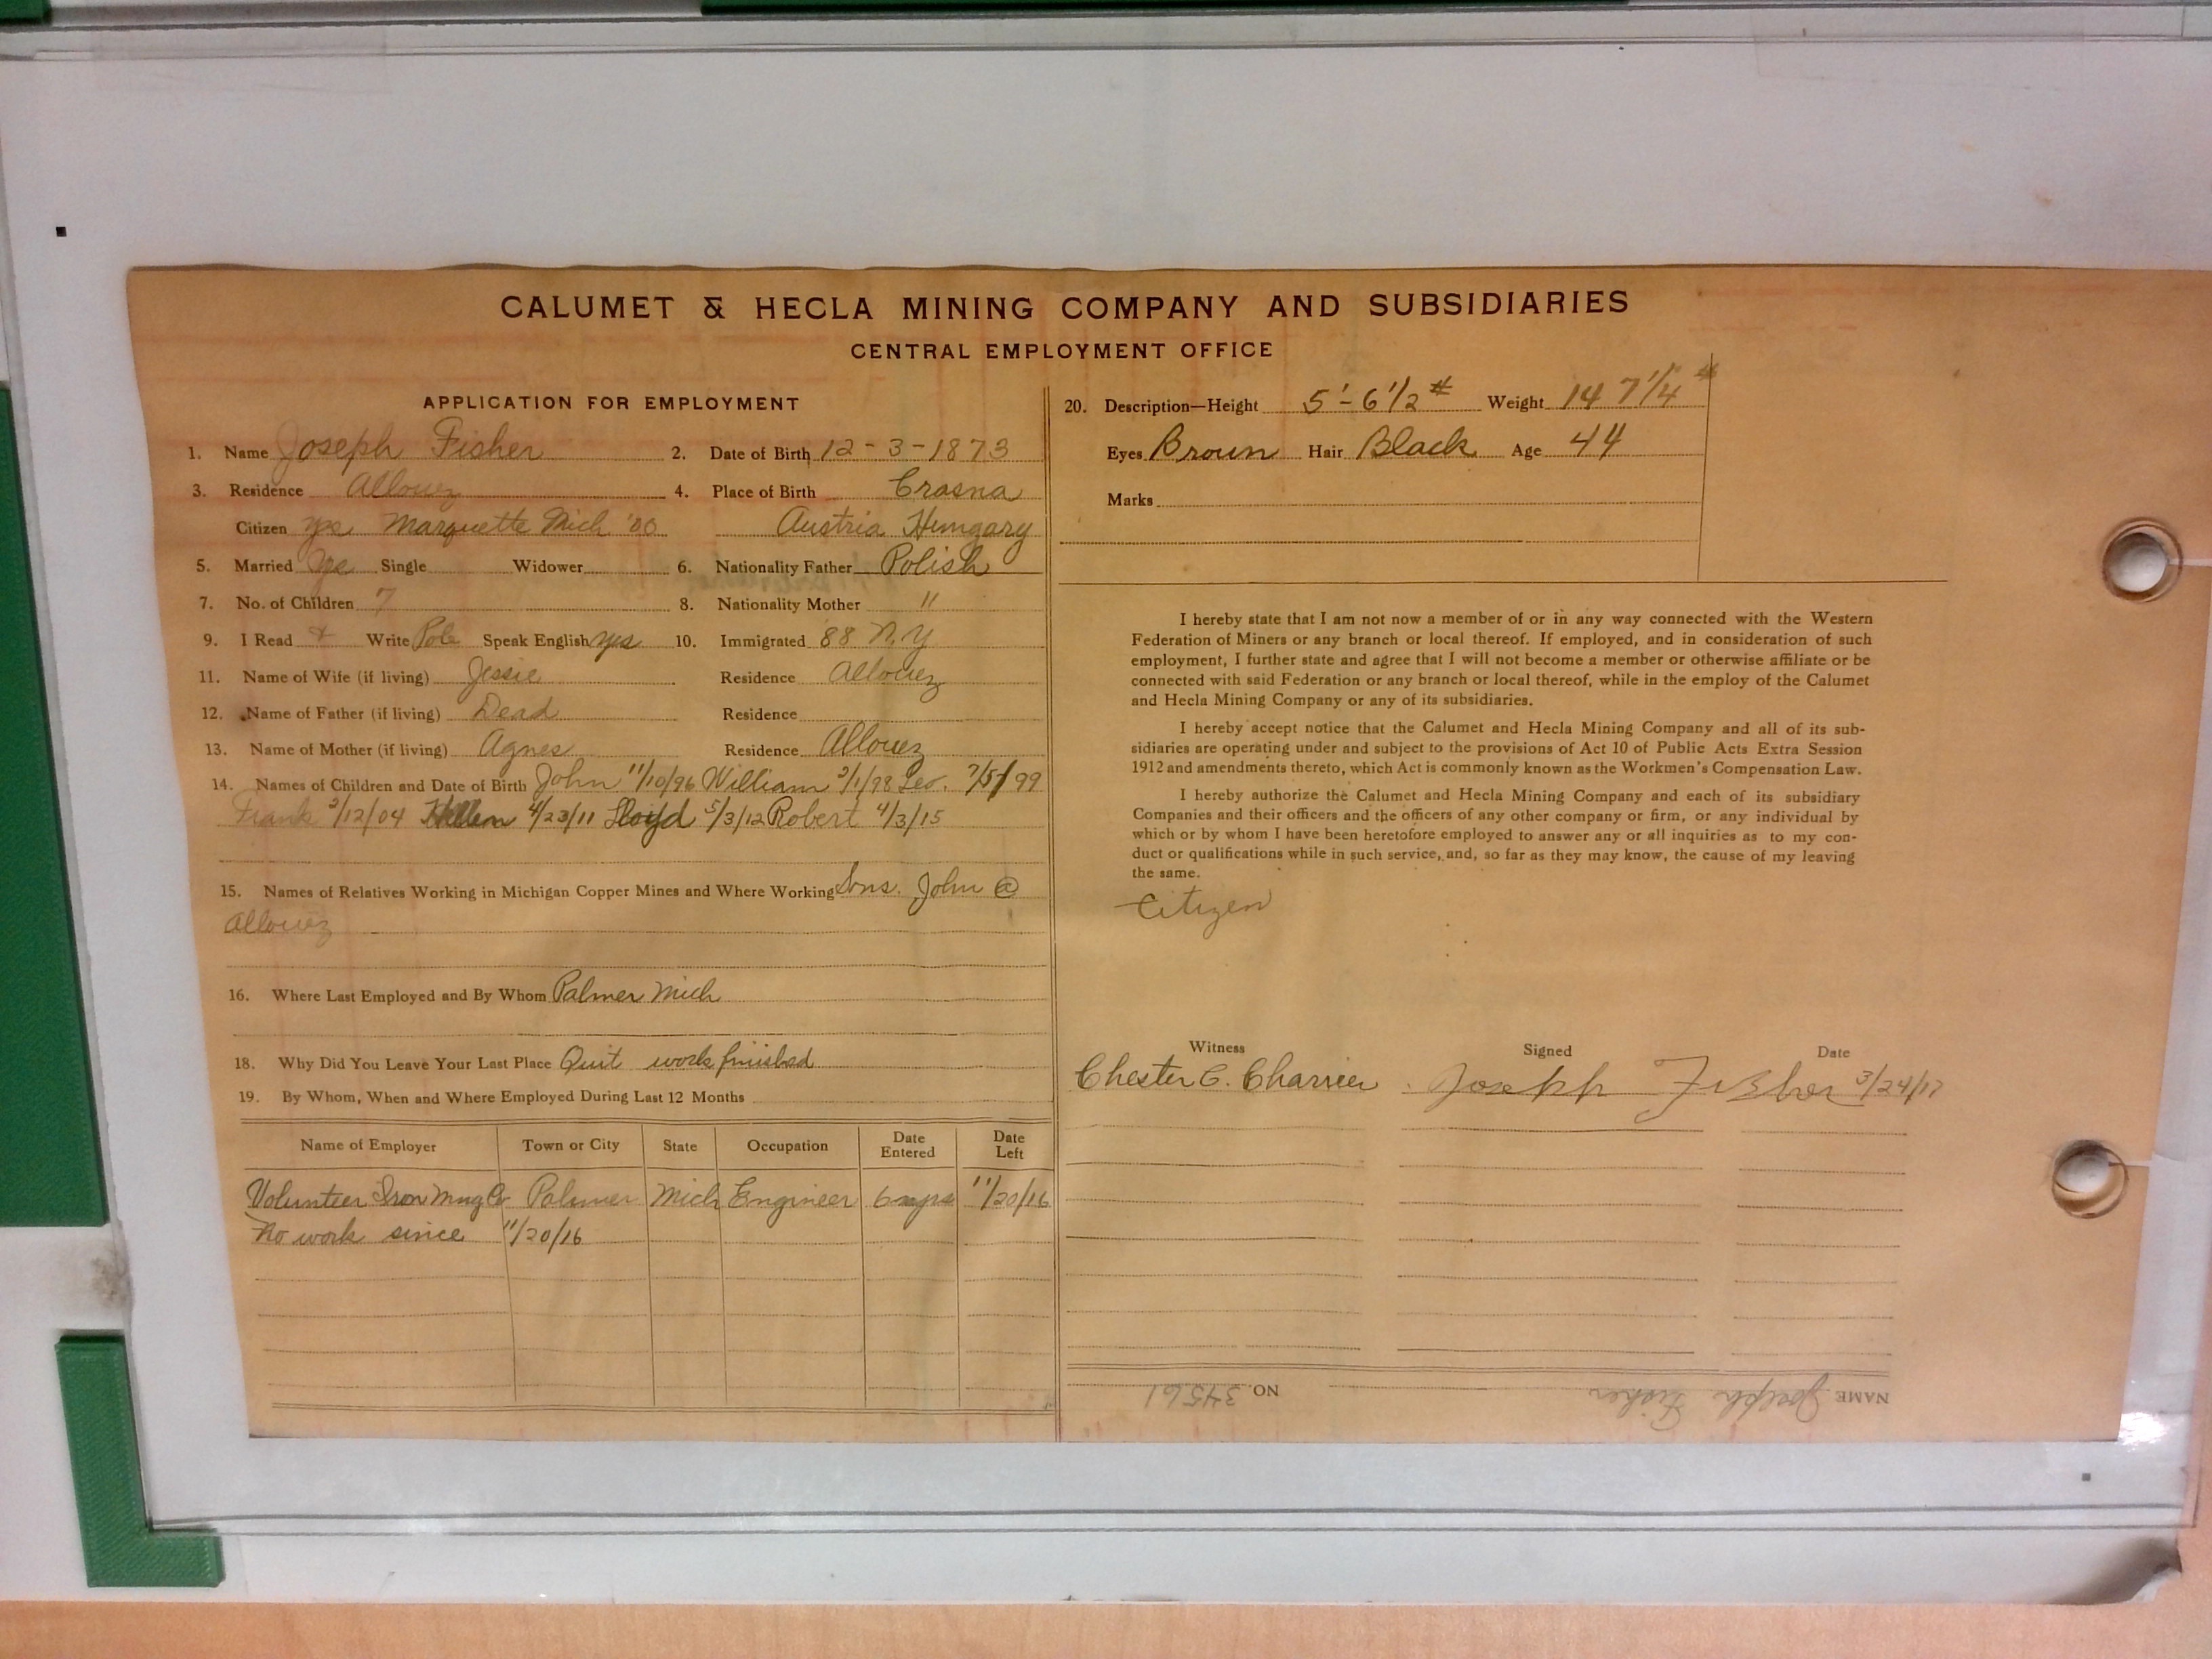 CALUMET & HECLA MINING COMPANY AND SUBSIDIARIES
CENTRAL EMPLOYMENT OFFICE
APPLICATION FOR EMPLOYMENT
1. Name Joseph Fisher 2. Date of Birth 12-3-1873
3. Residence Allouez 4. Place of Birth Crasna
Citizen yes Marquette Mich '00 Austria Hungary
5. Married Yes Single Widower 6. Nationality Father Polish
7. No. of Children 7 8. Nationality Mother "
9. I Read + Write Pole Speak English yes 10. Immigrated '88 N.Y
11. Name of Wife (if living) Jessie Residence Allouez
12. Name of Father (if living) Dead Residence
13. Name of Mother (if living) Agnes Residence Allouez
14. Names of Children and Date of Birth John 11/10/96 William 2/1/98 Leo. 7/5/99
Frank 2/12/04 Hellen 4/23/11 Lloyd 5/3/12 Robert 4/3/15
15. Names of Relatives Working in Michigan Copper Mines and Where Working Sons. John @
Allouez
16. Where Last Employed and By Whom Palmer Mich
18. Why Did You Leave Your Last Place Quit work finished
19. By Whom, When and Where Employed During Last 12 Months
Name of Employer Town or City State Occupation Date Entered Date Left
Volunteer Iron Mng Co Palmer Mich Engineer 6 yrs 11/20/16
No work since 11/20/16
20. Description—Height 5'-6 1/2" Weight 147 1/4 #
Eyes Brown Hair Black Age 44
Marks
I hereby state that I am not now a member of or in any way connected with the Western
Federation of Miners or any branch or local thereof. If employed, and in consideration of such
employment, I further state and agree that I will not become a member or otherwise affiliate or be
connected with said Federation or any branch or local thereof, while in the employ of the Calumet
and Hecla Mining Company or any of its subsidiaries.
I hereby accept notice that the Calumet and Hecla Mining Company and all of its sub-
sidiaries are operating under and subject to the provisions of Act 10 of Public Acts Extra Session
1912 and amendments thereto, which Act is commonly known as the Workmen's Compensation Law.
I hereby authorize the Calumet and Hecla Mining Company and each of its subsidiary
Companies and their officers and the officers of any other company or firm, or any individual by
which or by whom I have been heretofore employed to answer any or all inquiries as to my con-
duct or qualifications while in such service, and, so far as they may know, the cause of my leaving
the same.
Citizen
Witness Signed Date
Chester C. Charrier Joseph Fisher 3/24/17
NAME Joseph Fisher NO. 34561